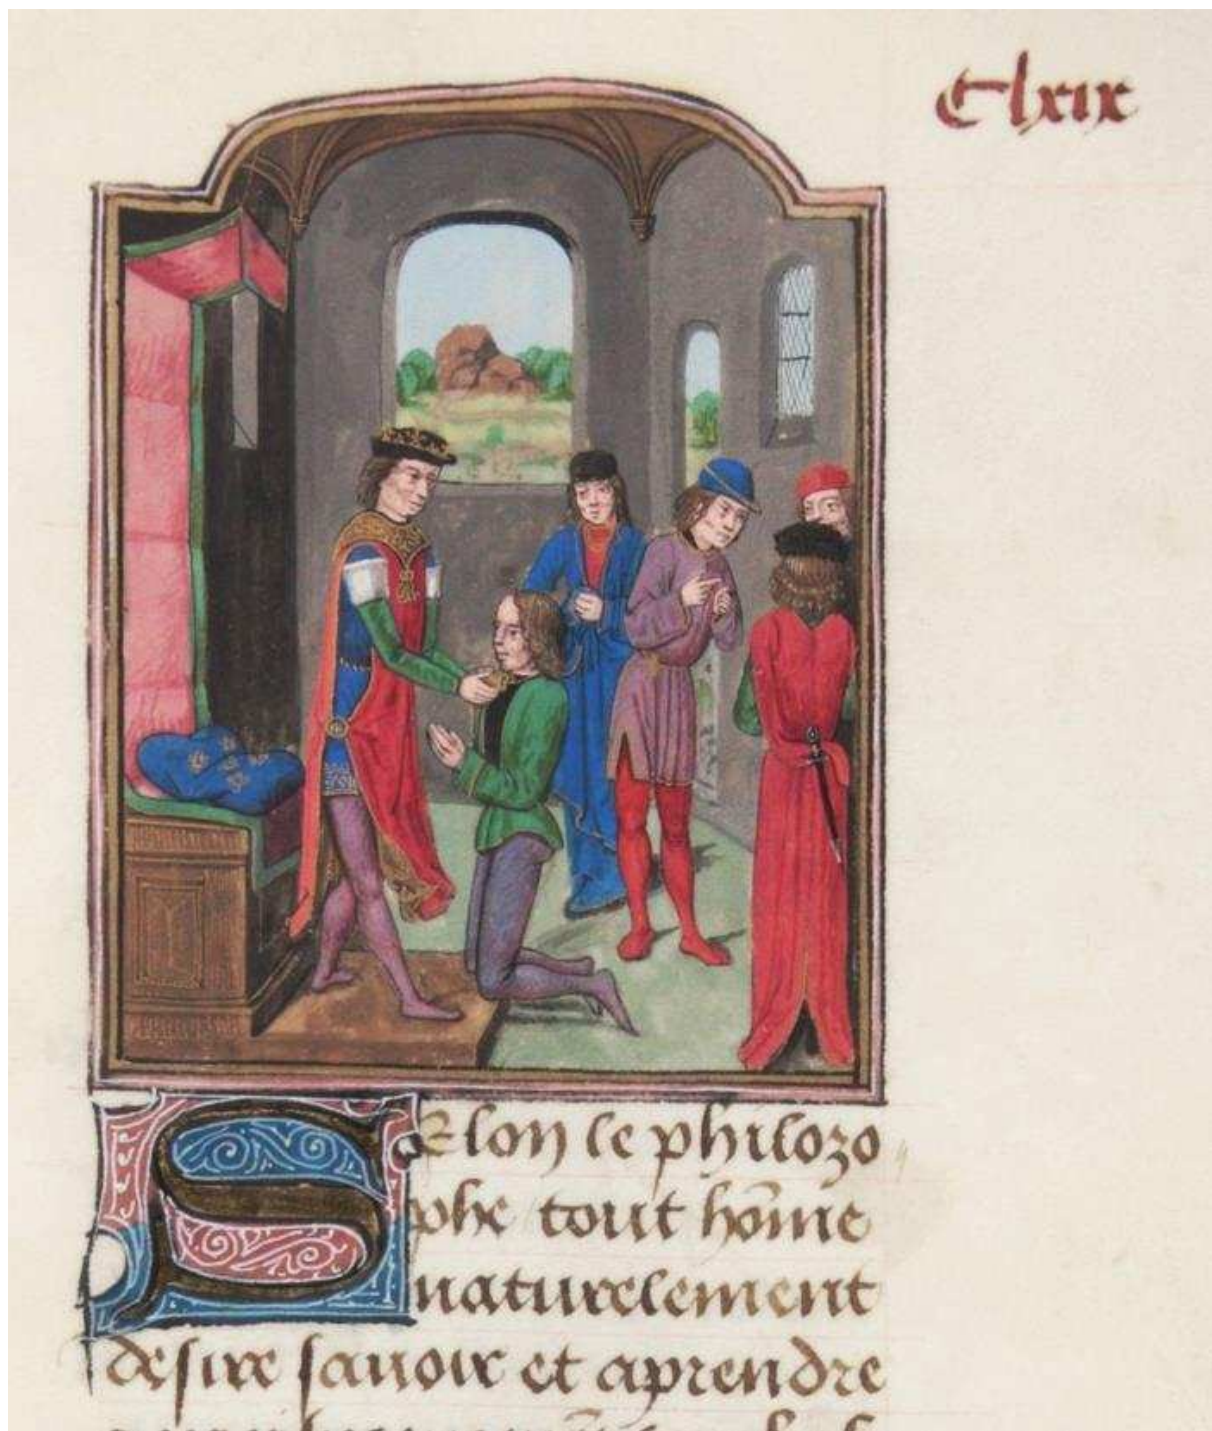 Clxix
SElon le philozo
phe tout hōme
naturelement
desire sauoir et aprendre